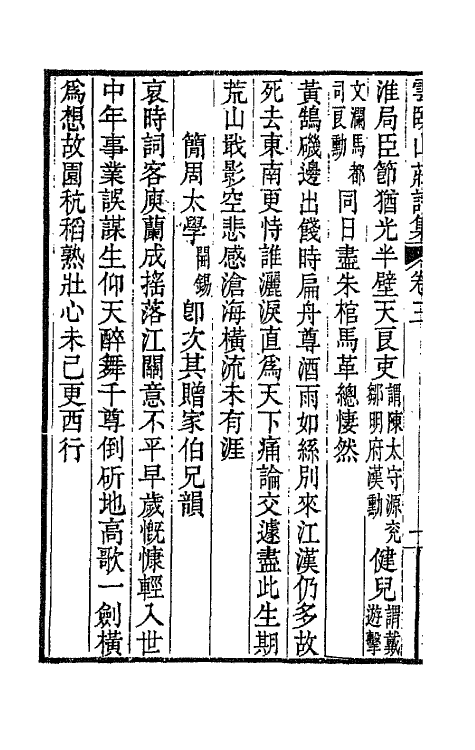 雲臥山莊詩集 卷三
淮局臣節猶光半壁天良吏謂陳太守源兖鄒明府漢勳健兒謂戴遊擊
文瀾馬都司良勳同日盡朱棺馬革總悽然
黃鵠磯邊出餞時扁舟尊酒雨如絲別來江漢仍多故
死去東南更恃誰灑淚直爲天下痛論交遽盡此生期
荒山戢影空悲感滄海橫流未有涯
簡周太學開錫卽次其贈家伯兄韻
哀時詞客庾蘭成搖落江關意不平早歲慨慷輕入世
中年事業誤謀生仰天醉舞千尊倒斫地高歌一劍橫
爲想故園秔稻熟壯心未已更西行